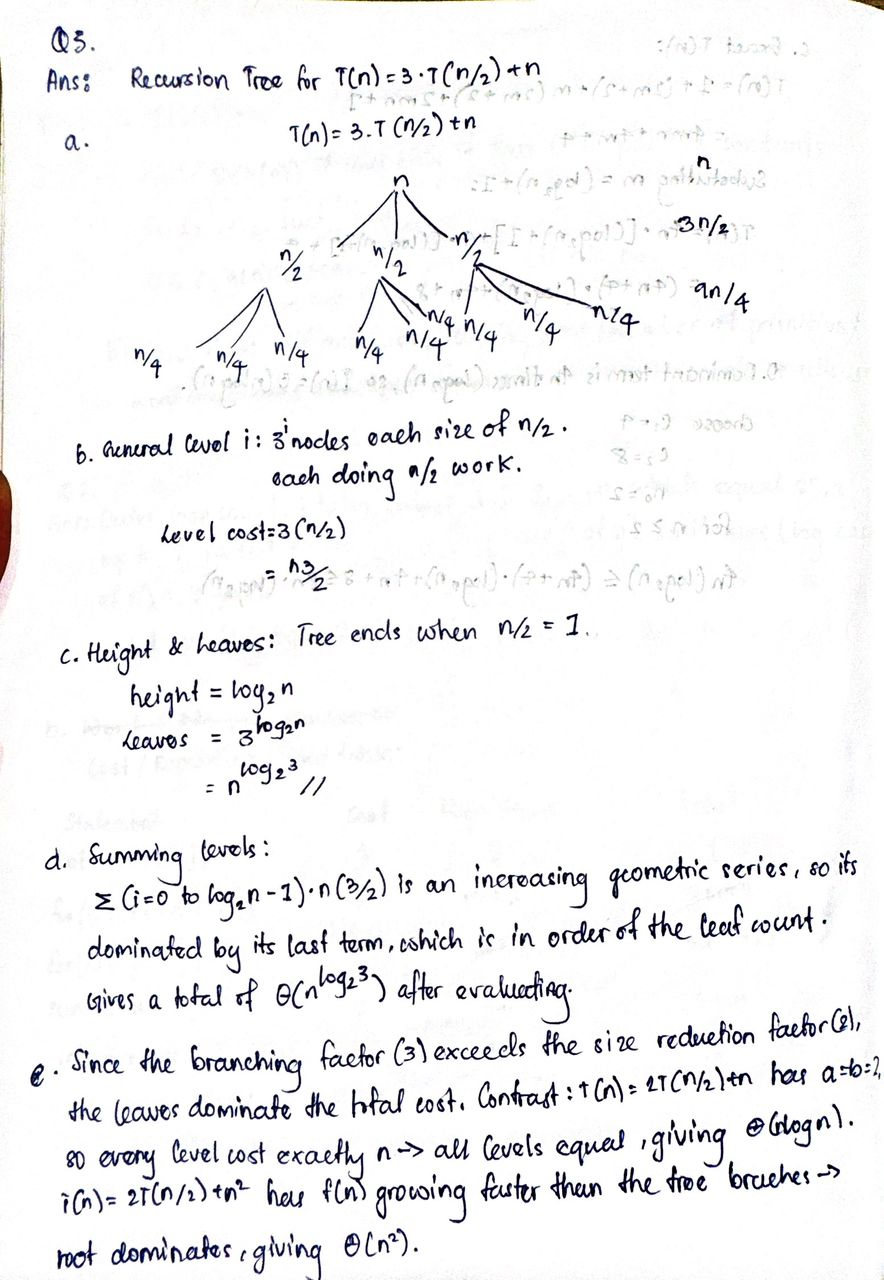 Q3.
Ans: Recursion Tree for T(n)=3·T(n/2)+n
a. T(n)=3.T(n/2)+n
n n
n/2 n/2 n/2 3n/2
n/4 n/4 n/4 n/4 n/4 n/4 n/4 n/4 n/4 9n/4
b. General level i: 3^i nodes each size of n/2.
each doing n/2 work.
Level cost=3(n/2)
= n3/2
c. Height & Leaves: Tree ends when n/2 = 1.
height = log₂n
Leaves = 3^log₂n
= n^log₂3 //
d. Summing levels:
Σ(i=0 to log₂n-1)·n(3/2) is an increasing geometric series, so its
dominated by its last term, which is in order of the leaf count.
Gives a total of Θ(n^log₂3) after evaluating.
e. Since the branching factor (3) exceeds the size reduction factor(2),
the leaves dominate the total cost. Contrast: T(n)=2T(n/2)+n has a=b=2,
so every level cost exactly n→ all levels equal, giving Θ(nlogn).
T(n)=2T(n/2)+n² has f(n) growing faster than the tree braches→
root dominates, giving Θ(n²).